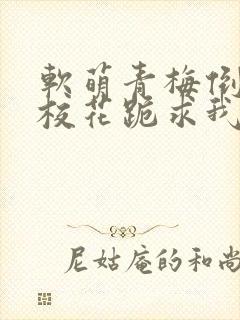 軟萌青梅倒
校花跪求我
尼姑庵的和尚